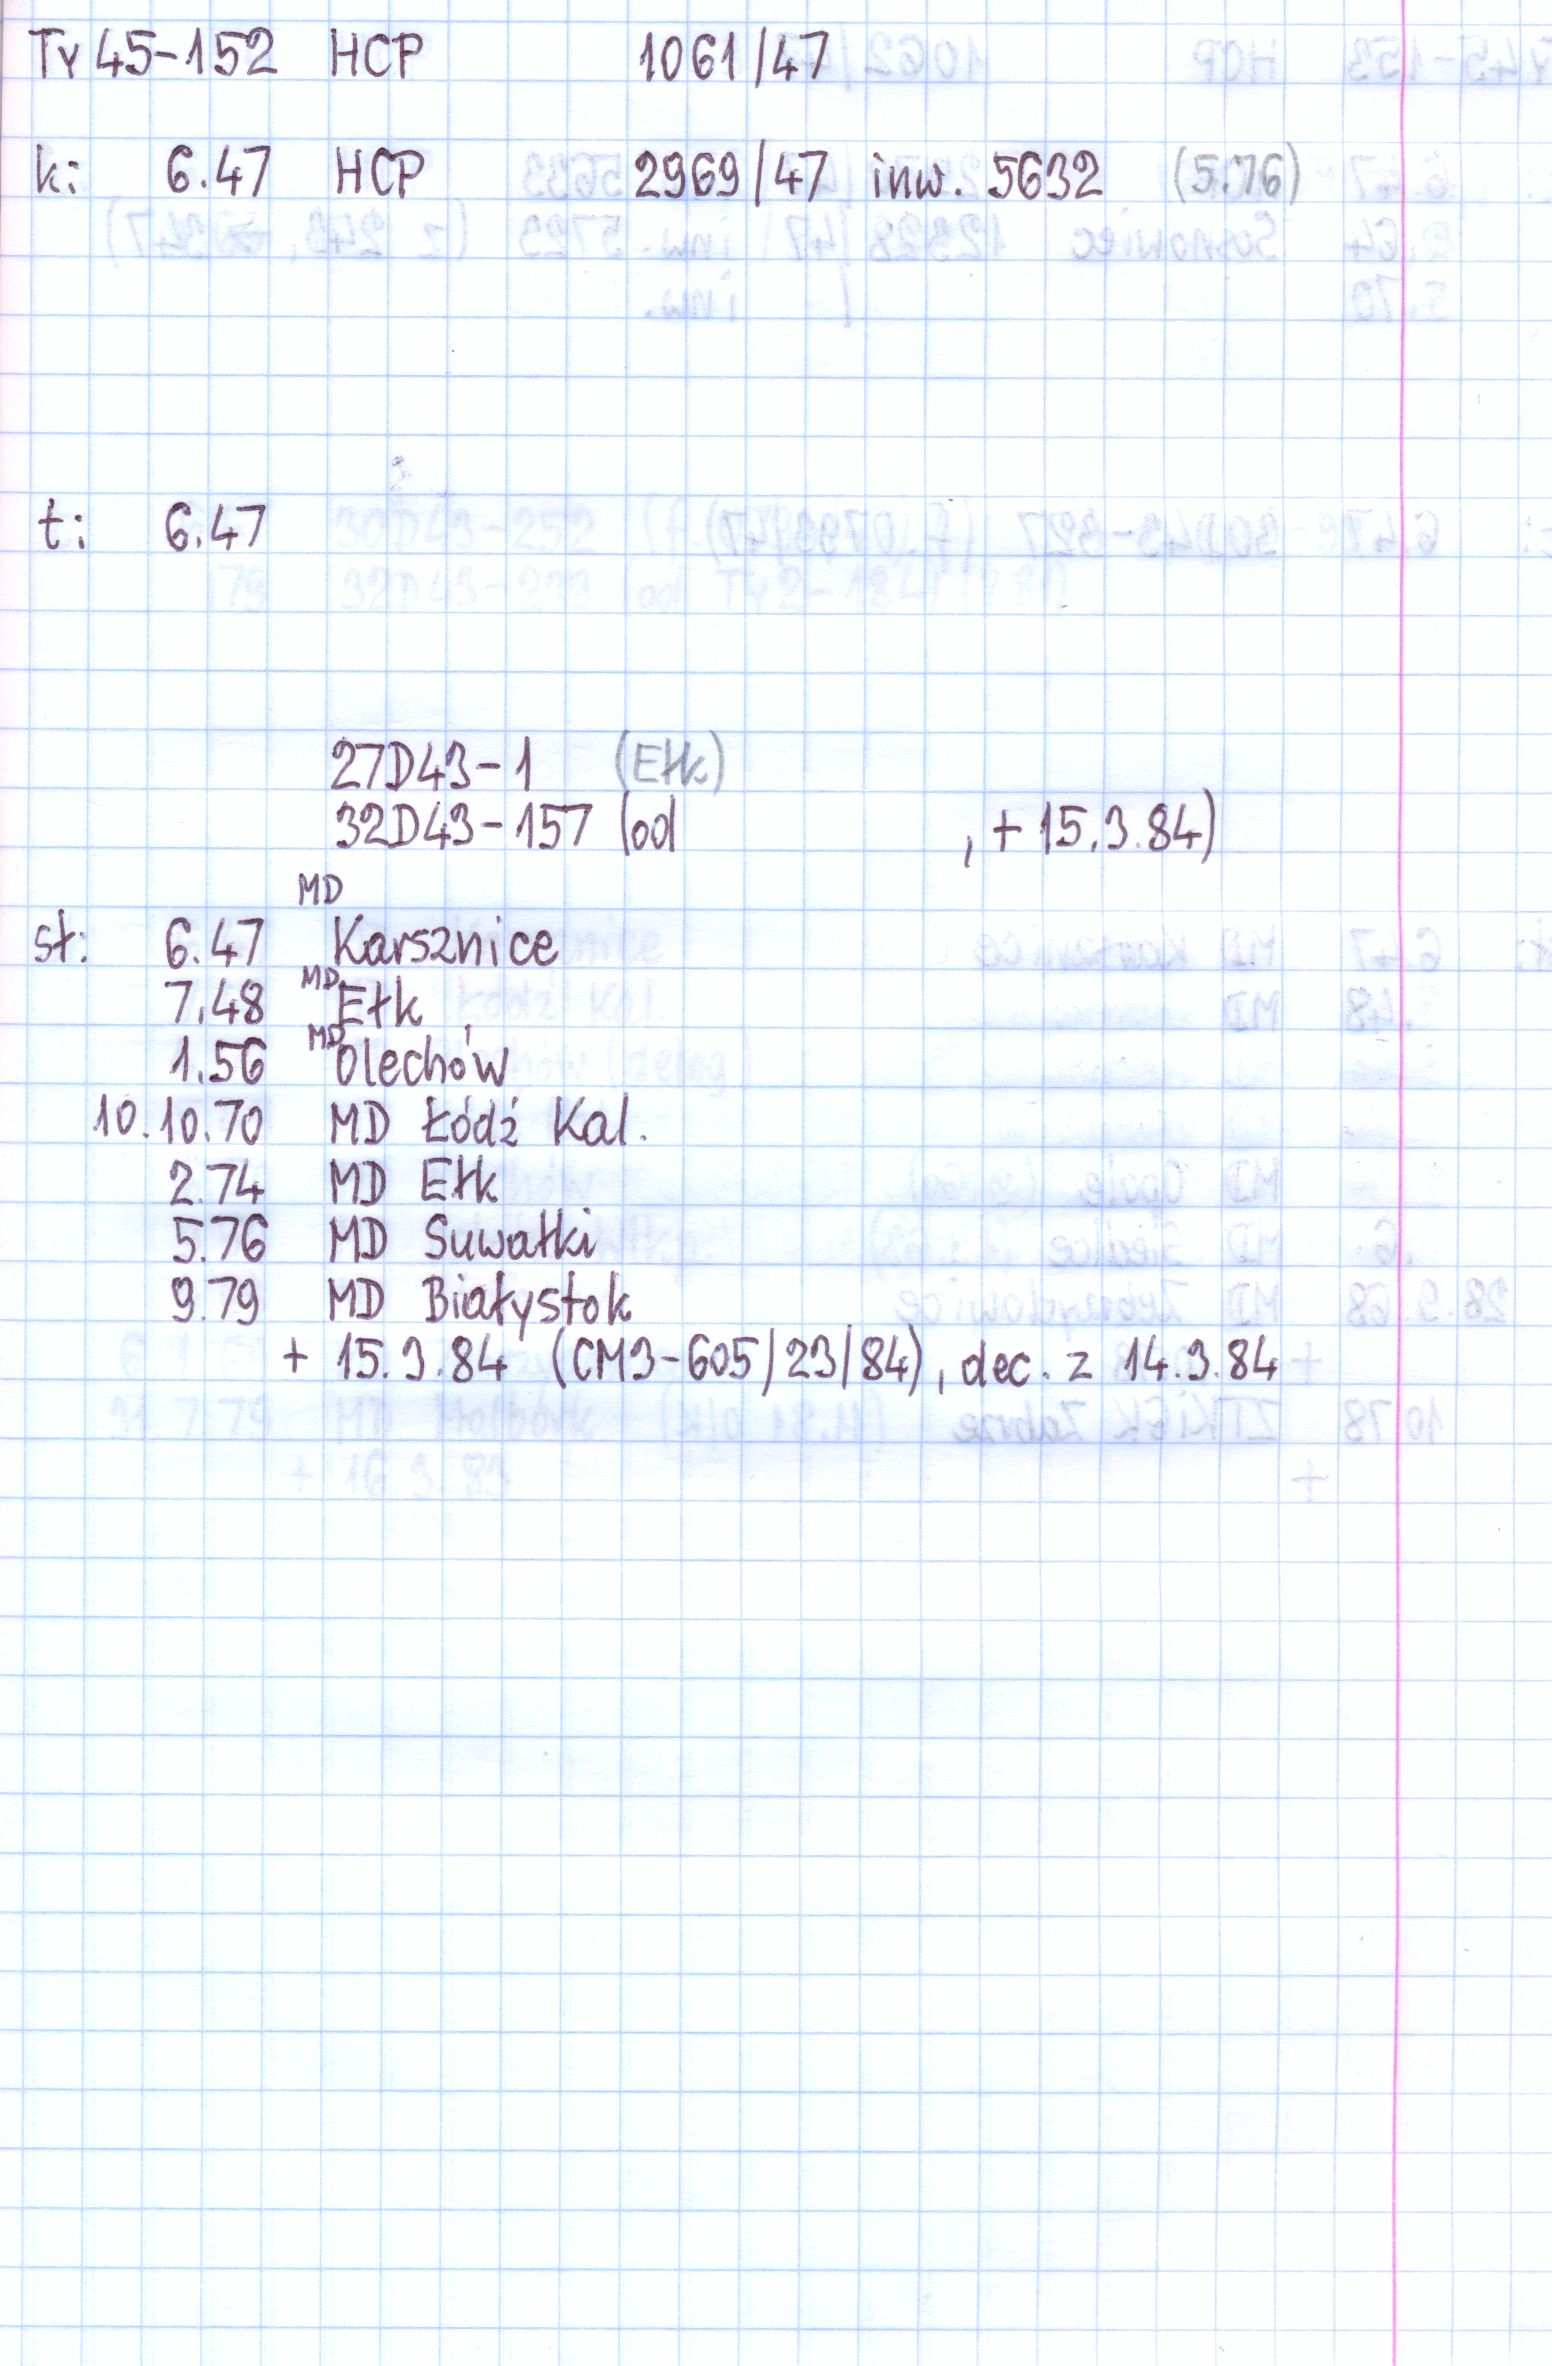 Ty45-152 HCP 1061/47
k: 6.47 HCP 2969/47 inw. 5632 (5.76)
t: 6.47
27D43-1 (Ełk)
32D43-157 (od , + 15.3.84)
MD
st: 6.47 Karsznice
7.48 MD Ełk
1.56 MD Olechów
10.10.70 MD Łódź Kal.
2.74 MD Ełk
5.76 MD Suwałki
9.79 MD Białystok
+ 15.3.84 (CM3-605/23/84), dec. z 14.3.84